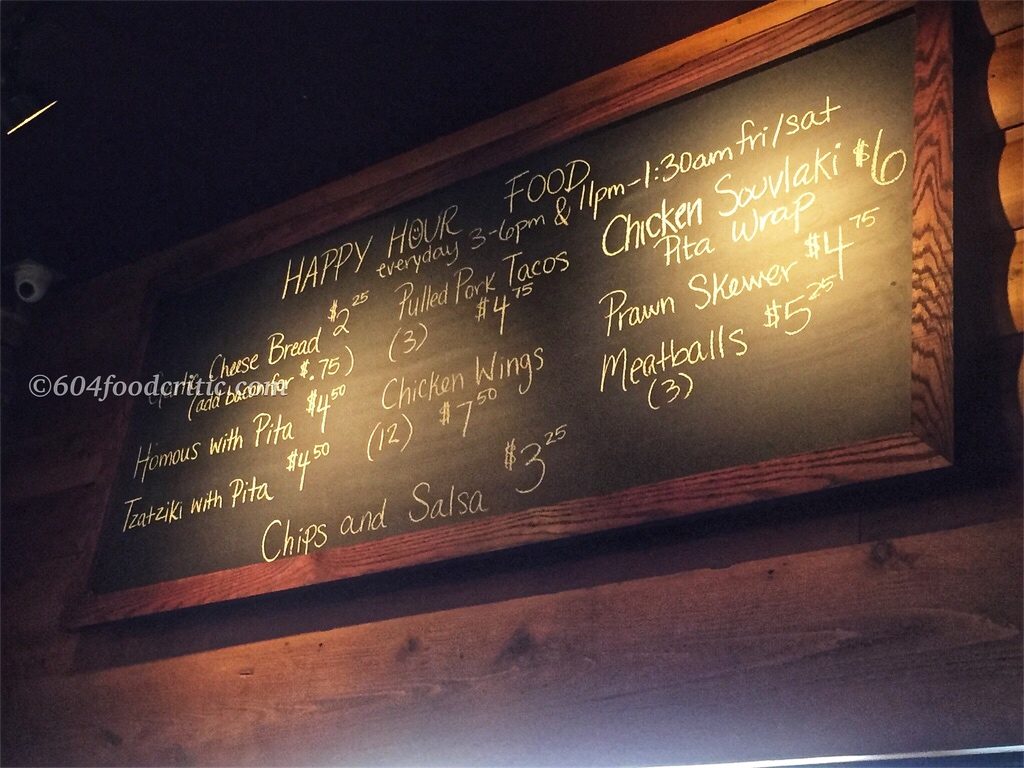 HAPPY HOUR FOOD
everyday 3-6pm & 11pm-1:30am fri/sat
Garlic Cheese Bread $2.25
(add bacon for $.75)
Homous with Pita $4.50
Tzatziki with Pita $4.50
Pulled Pork Tacos
(3) $4.75
Chicken Wings
(12) $7.50
Chicken Souvlaki $6
Pita Wrap
Prawn Skewer $4.75
Meatballs $5.25
(3)
Chips and Salsa $3.25
©604foodcrittic.com